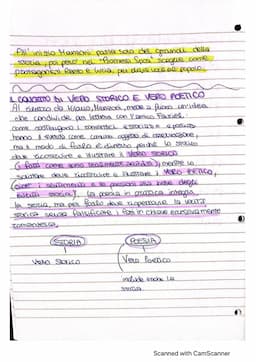 All'inizio Manzoni parla solo dei grandi della
storia, poi però nei "Promessi Sposi" sceglie come
protagonisti Renzo e Lucia, per dare voce al popolo.
IL CONCETTO DI VERO STORICO E VERO POETICO
Manzoni, mette a fuoco un'idea
che condivide per lettera con
come sostengono i romantici, storico e poeta
hanno il vero come comune oggetto di
ma il modo di farlo è diverso perché lo storico
deve ricostruire e illustrare il VERO STORICO
(i fatti come sono realmente accaduti) mentre lo
scrittore deve ricostruire e illustrare il VERO POETICO,
cioè i sentimenti e le passioni
storici). La poesia in pratica integra
la storia, ma per farlo deve rispettare la verità
storica senza falsificare i fatti in chiave
romanzesca.
STORIA
POESIA
Vero Storico
Vero Poetico
include anche la
storia
Scanned with CamScanner